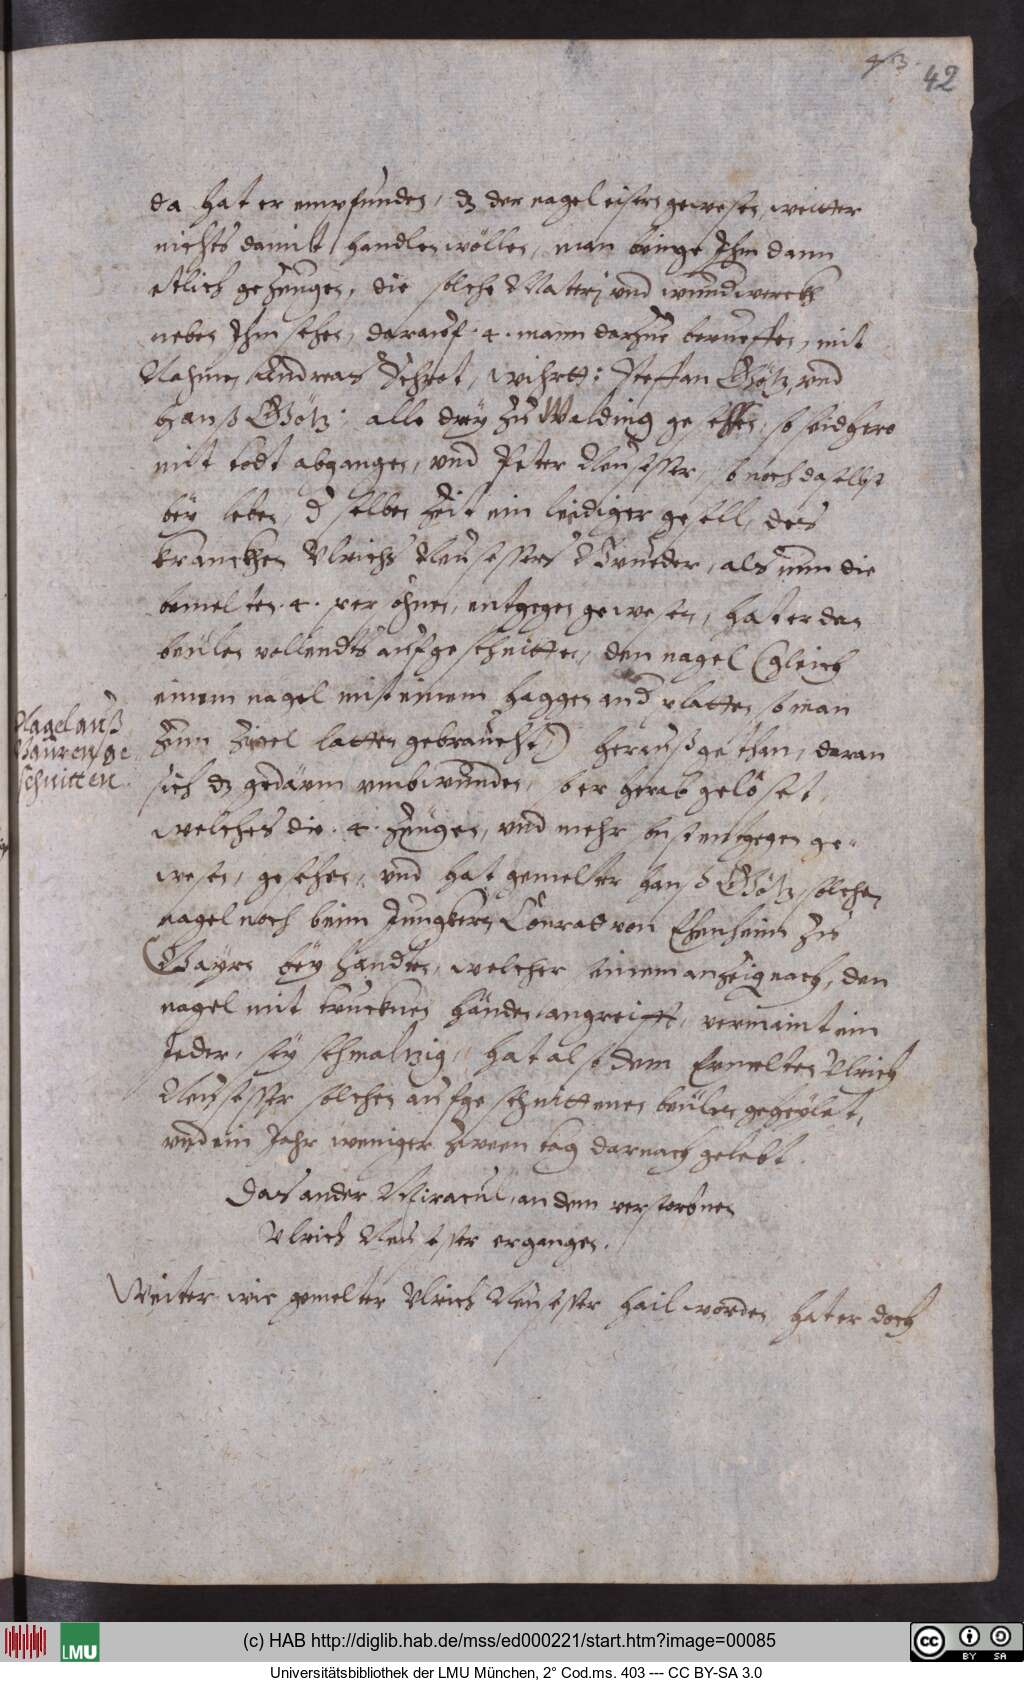 43
42
da hat er empfunden, dz der nagel eisern gewesen, weitter
nichts damit handlen wöllen, man bringe Ihm dann
etlich gezeugen, die solche Materj vnd wundwerckh
neben Ihm sehen, darauf .4. mann darzue berueffen, mit
Nahmen Andreas Schrot, wihrtt: Steffan Götz, vnd
Hanß Götz: alle drey zu Walding gesessen, so seidhero
mit todt abgangen, vnd Peter Neusesser, so noch daselbst
bey leben, d selben Zeit ein lediger gesell, des
kranckhen Vlrichs Neusessers Brueder, als nun die
bemelten .4. personen, entgegen gewesen, hat er den
beulen vollendts aufgeschnitten, den nagel (gleich
einem nagel mit einem haggen und platten, so man
zum Ziegel latten gebraucht,) heraußgethan, daran
sich dz gedärm vmbwunden, so er herab gelöset,
welches die .4. Zeugen, vnd mehr leüt entgegen ge-
wesen, gesehen, vnd hat gemelter Hanß Götz solchen
nagel noch beim Junckhern Conrad von Ehenheim zu
Gayrn bey handen, welcher seinem anzeig nach, den
nagel mit trucknen händen angreifft, vermaint ein
Jeder, sey schmaltzig, hat also dem Ermelten Vlrich
Neusesser solchen aufgeschnittenen beulen geheylet,
vnd ein Jahr weniger zween tag darnach gelebt.
Nagel auß
Bauren ge
schnitten.
Das ander Miracul, an dem verstorbnen
Vlrich Neusesser ergangen.
Weiter wie gemelter Vlrich Neusesser hail worden, hat er doch
(c) HAB http://diglib.hab.de/mss/ed000221/start.htm?image=00085
LMU
cc BY SA
Universitätsbibliothek der LMU München, 2° Cod.ms. 403 --- CC BY-SA 3.0